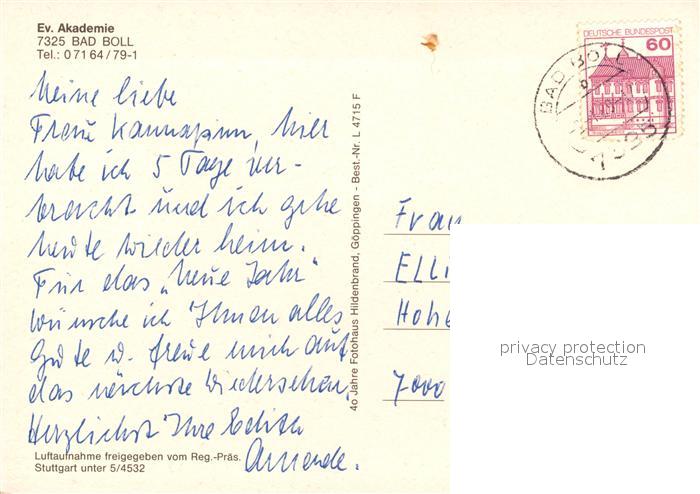 Ev. Akademie
7325 BAD BOLL
Tel.: 0 71 64 / 79-1
Meine liebe
Frau Kannapinn, hier
habe ich 5 Tage ver-
bracht und ich gehe
heute wieder heim.
Für das „Neue Jahr"
wünsche ich Ihnen alles
Gute u. freue mich auf
das nächste Wiedersehen.
Herzlichst Ihre Edith
Amende.
Luftaufnahme freigegeben vom Reg.-Präs.
Stuttgart unter 5/4532
40 Jahre Fotohaus Hildenbrand, Göppingen - Best.-Nr. L 4715 F
DEUTSCHE BUNDESPOST
60
BAD BOLL
7325
Frau
ELLI
Hohe
7000
privacy protection
Datenschutz